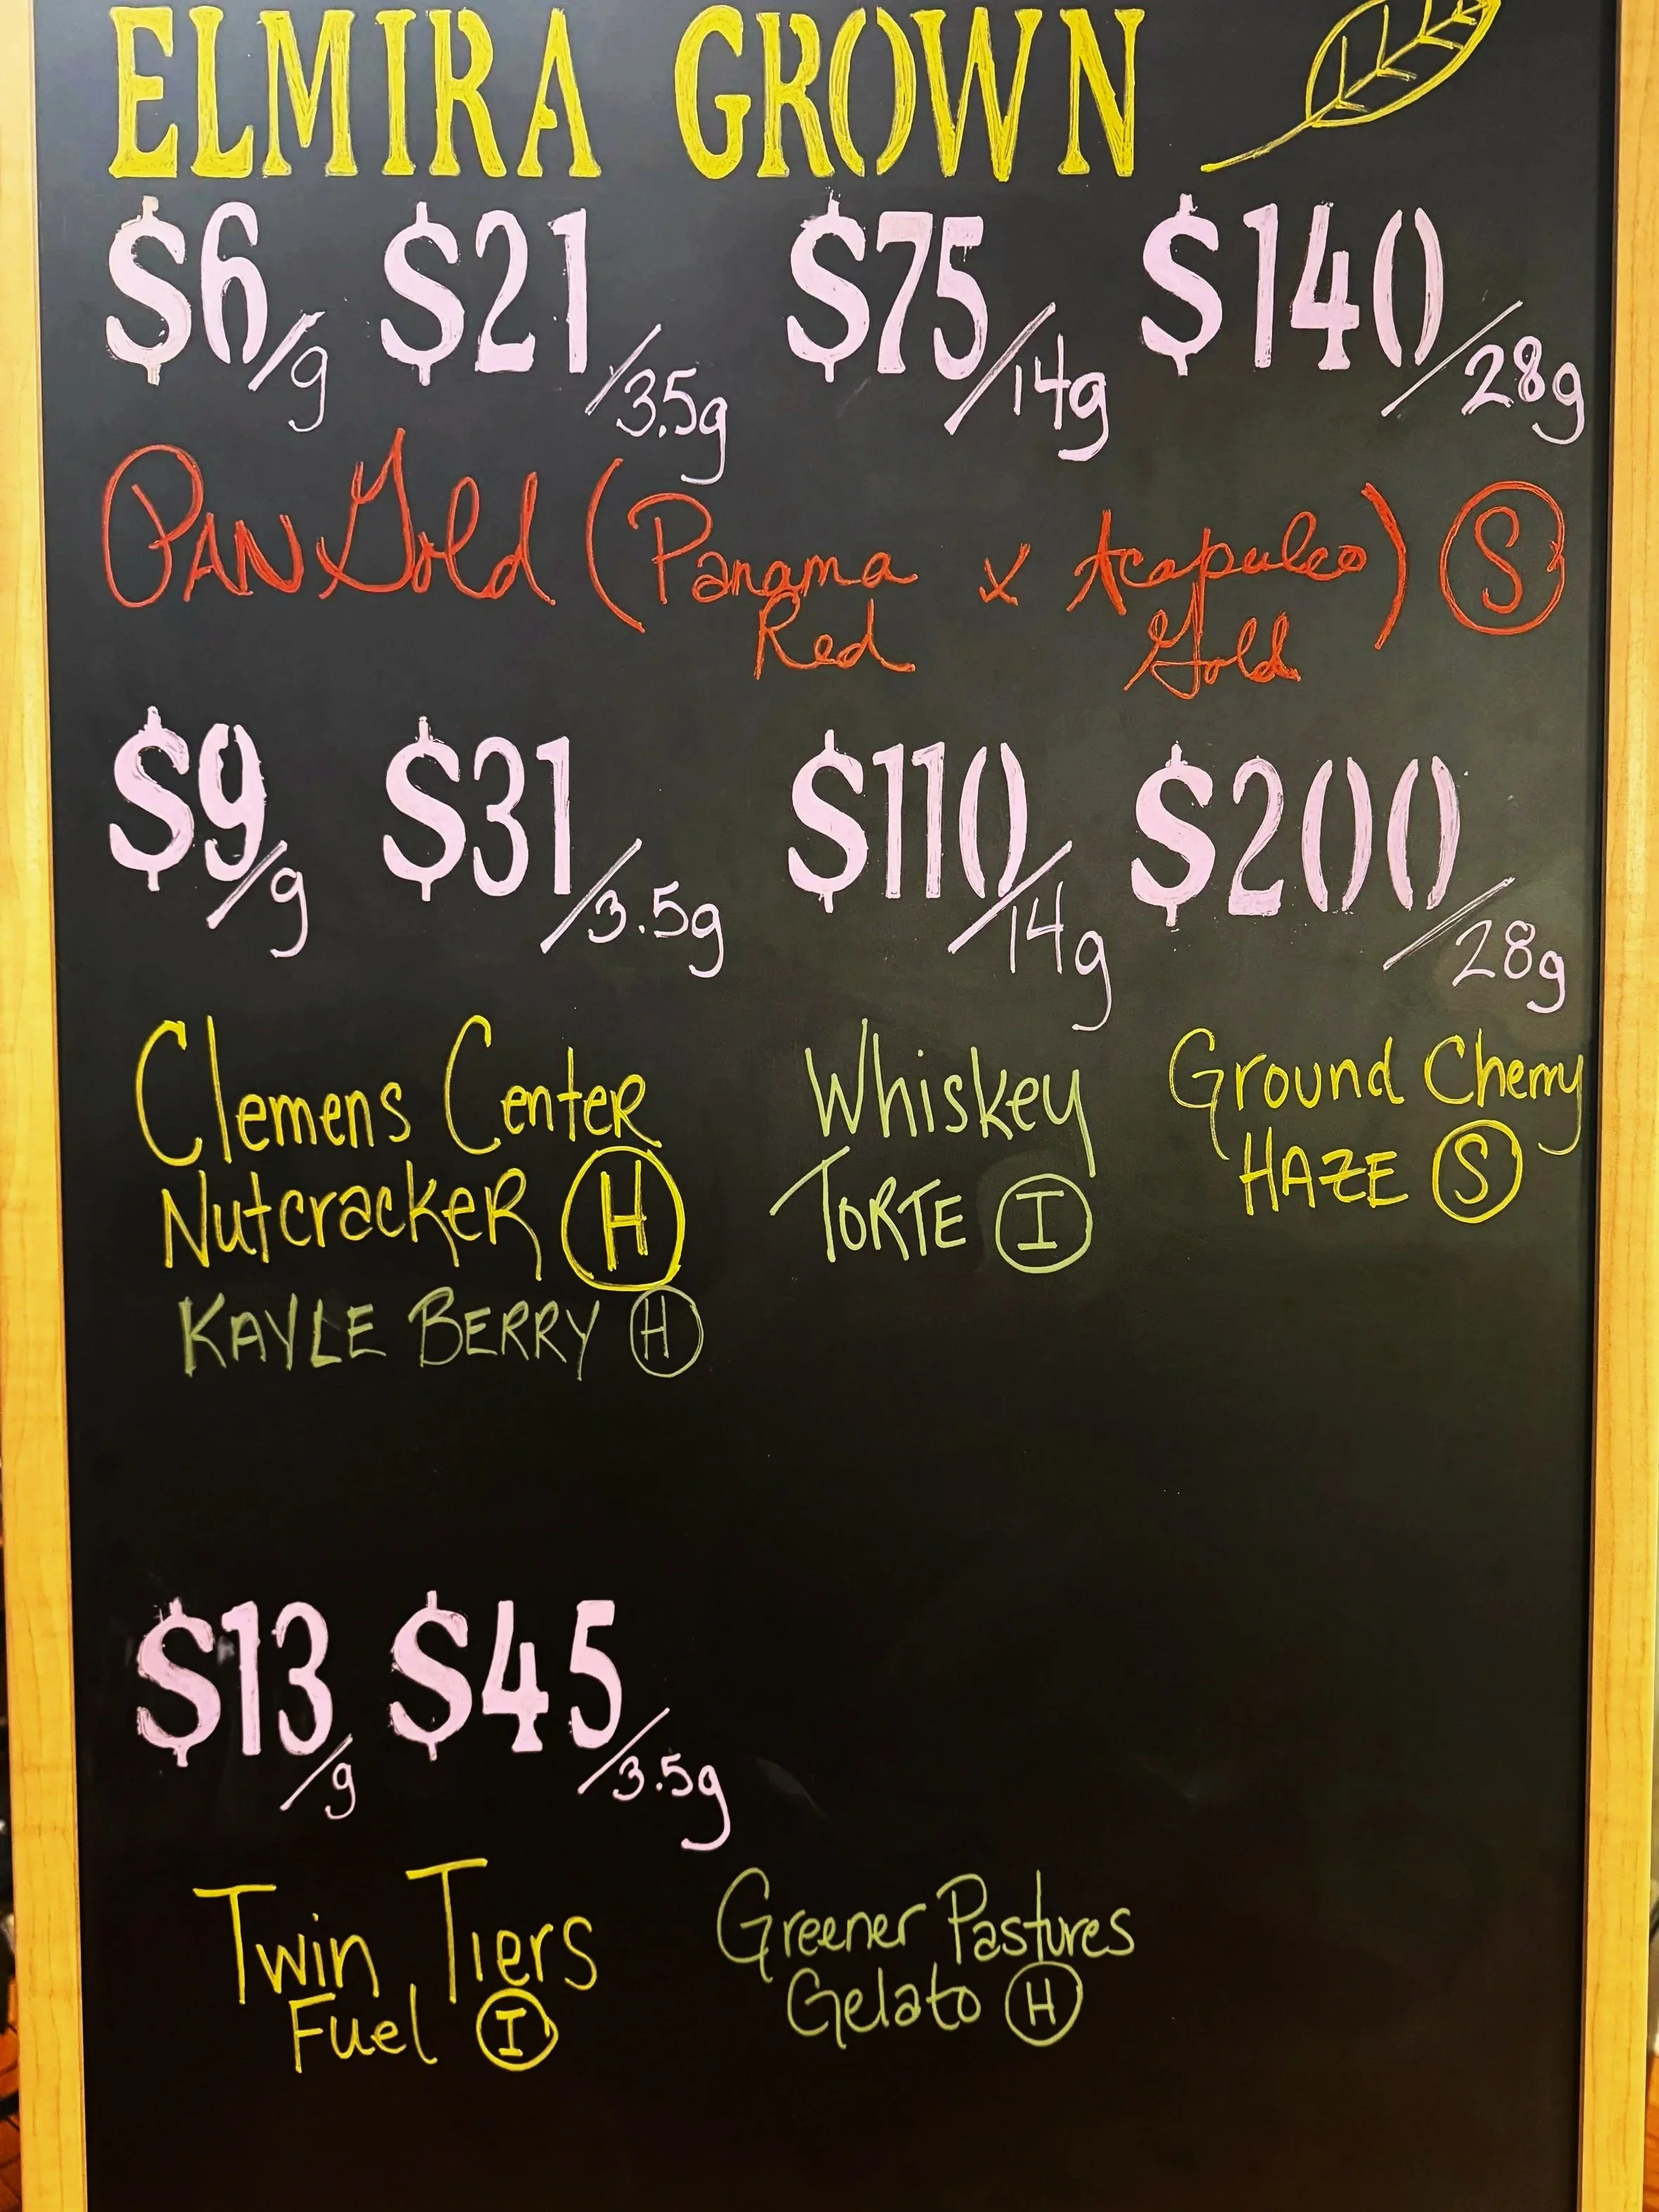 ELMIRA GROWN
$6/g $21/3.5g $75/14g $140/28g
PAN Gold (Panama Red x Acapulco Gold) S
$9/g $31/3.5g $110/14g $200/28g
Clemens Center
Nutcracker H
KAYLE BERRY H
Whiskey
TORTE I
Ground Cherry
HAZE S
$13/g $45/3.5g
Twin Tiers
Fuel I
Greener Pastures
Gelato H